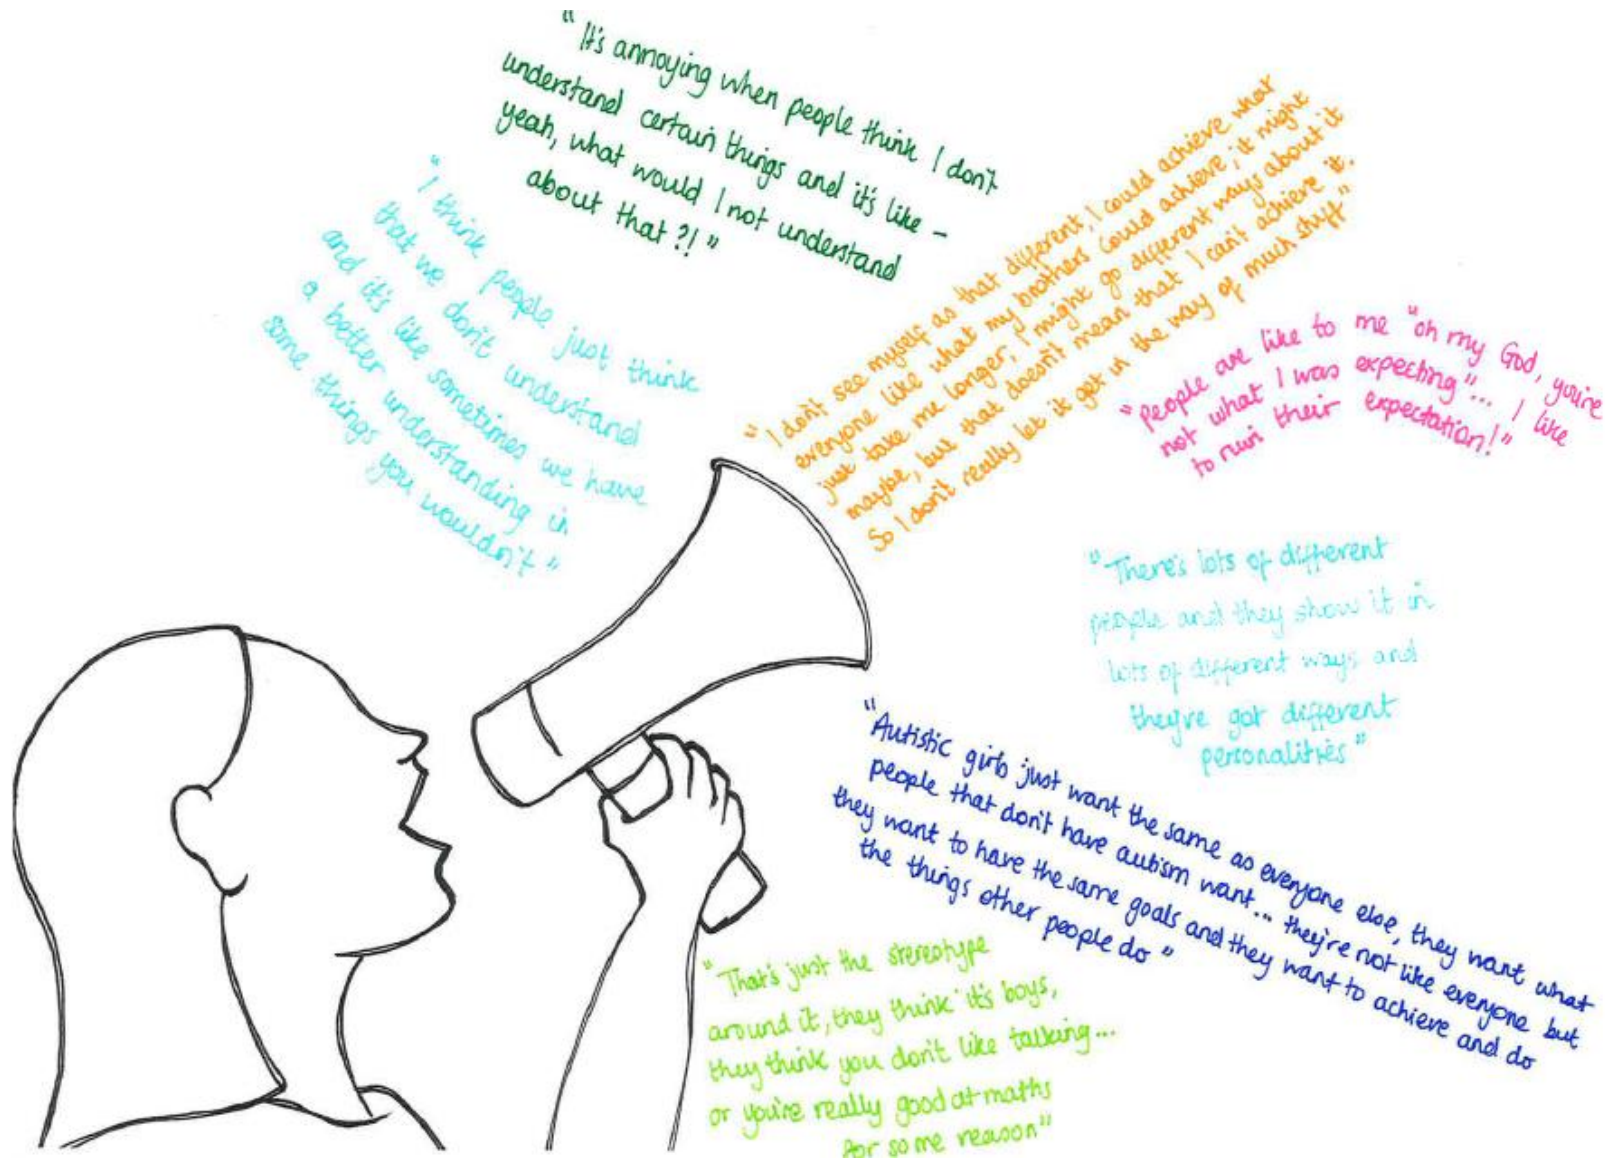 "It's annoying when people think I don't
understand certain things and it's like –
yeah, what would I not understand
about that?!"
"I think people just think
that we don't understand
and it's like sometimes we have
a better understanding in
some things you wouldn't"
"I don't see myself as that different, I could achieve what
everyone like what my brothers could achieve, it might
just take me longer, I might go different ways about it
maybe, but that doesn't mean that I can't achieve it.
So I don't really let it get in the way of much stuff"
"People are like to me "oh my God, you're
not what I was expecting"... I like
to ruin their expectation!"
"There's lots of different
people and they show it in
lots of different ways and
they've got different
personalities"
"Autistic girls just want the same as everyone else, they want what
people that don't have autism want... they're not like everyone but
they want to have the same goals and they want to achieve and do
the things other people do"
"That's just the stereotype
around it, they think it's boys,
they think you don't like talking...
or you're really good at maths
for some reason"